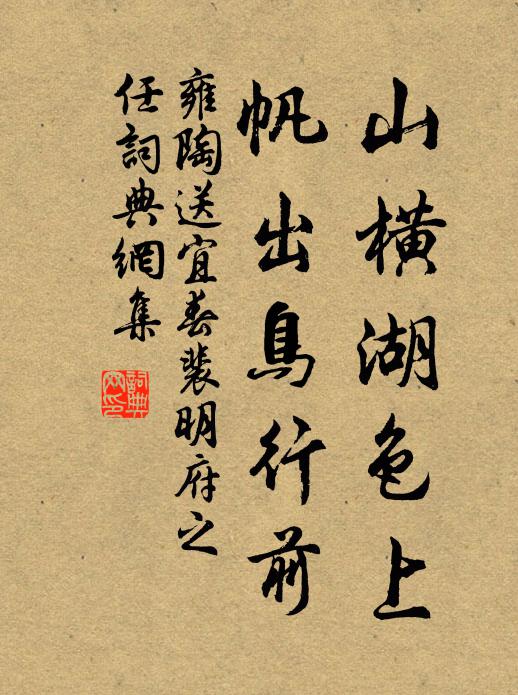 山橫湖色上
帆出鳥行前
雍陶送宜春裴明府之
任詞典網集
詞典
网印